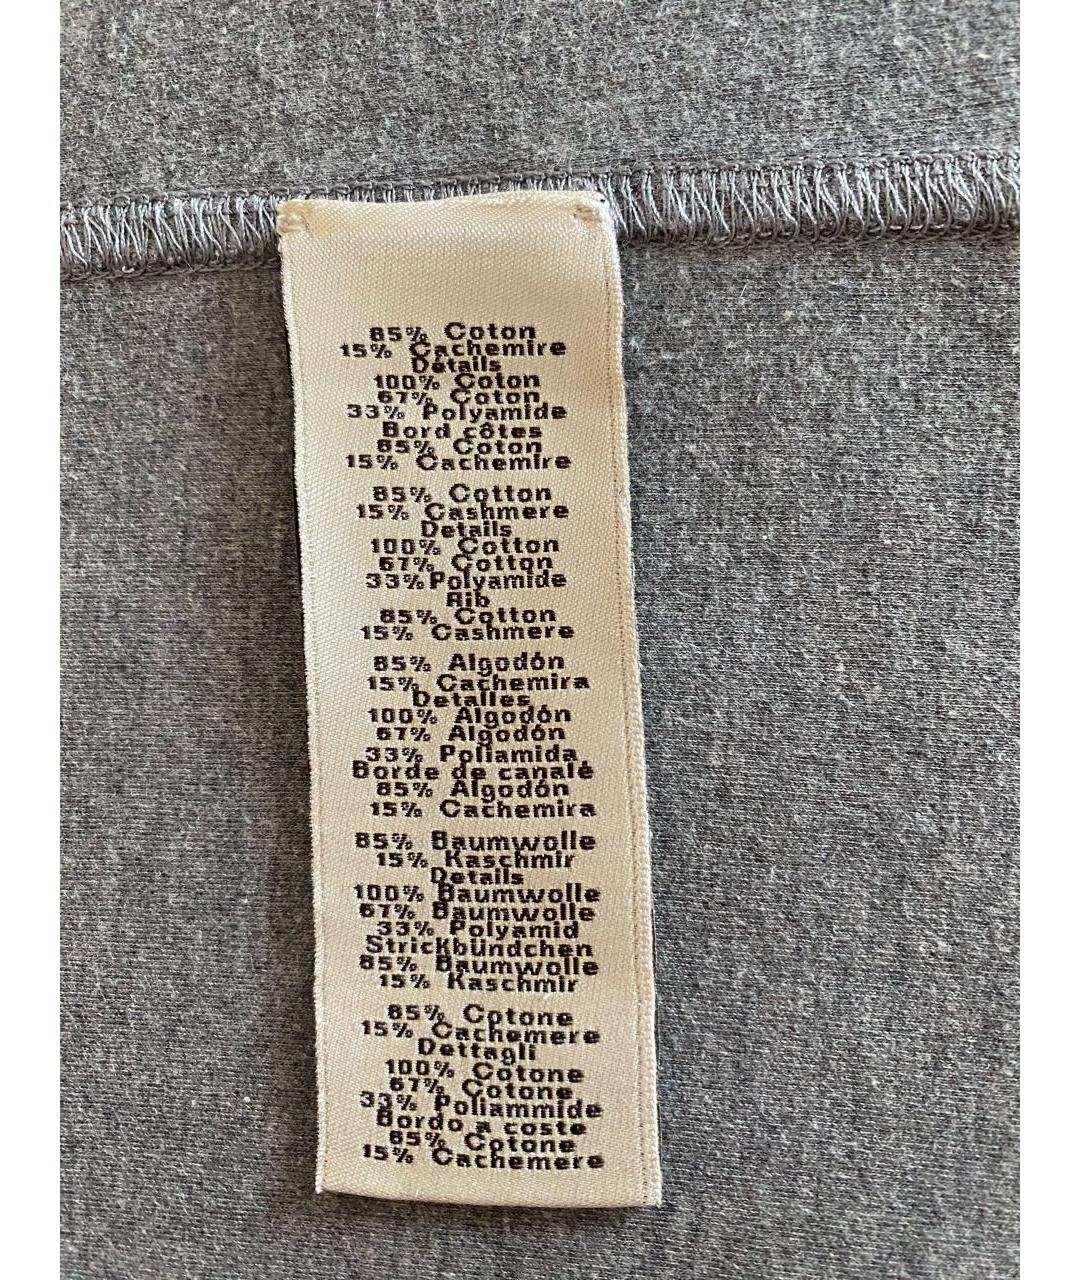 85% Coton
15% Cachemire
Détails
100% Coton
67% Coton
33% Polyamide
Bord côtes
85% Coton
15% Cachemire
85% Cotton
15% Cashmere
Details
100% Cotton
67% Cotton
33% Polyamide
Rib
85% Cotton
15% Cashmere
85% Algodón
15% Cachemira
Detalles
100% Algodón
67% Algodón
33% Poliamida
Borde de canalé
85% Algodón
15% Cachemira
85% Baumwolle
15% Kaschmir
Details
100% Baumwolle
67% Baumwolle
33% Polyamid
Strickbündchen
85% Baumwolle
15% Kaschmir
85% Cotone
15% Cachemere
Dettagli
100% Cotone
67% Cotone
33% Poliammide
Bordo a coste
85% Cotone
15% Cachemere